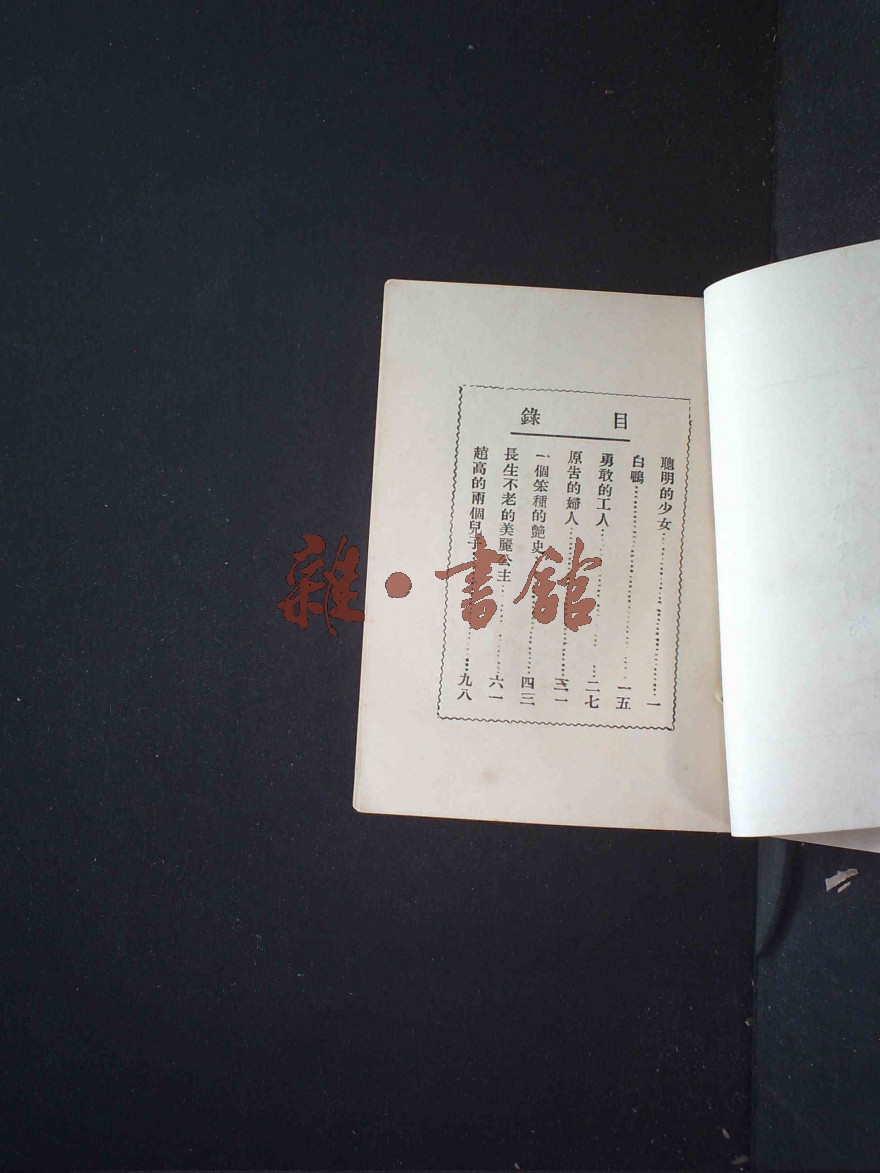 目錄
聰明的少女 一
白鴨 一五
勇敢的工人 二七
原告的婦人 三一
一個笨種的艷史 四三
長生不老的美麗公主 六一
趙高的兩個兒子 九八
雜·書館